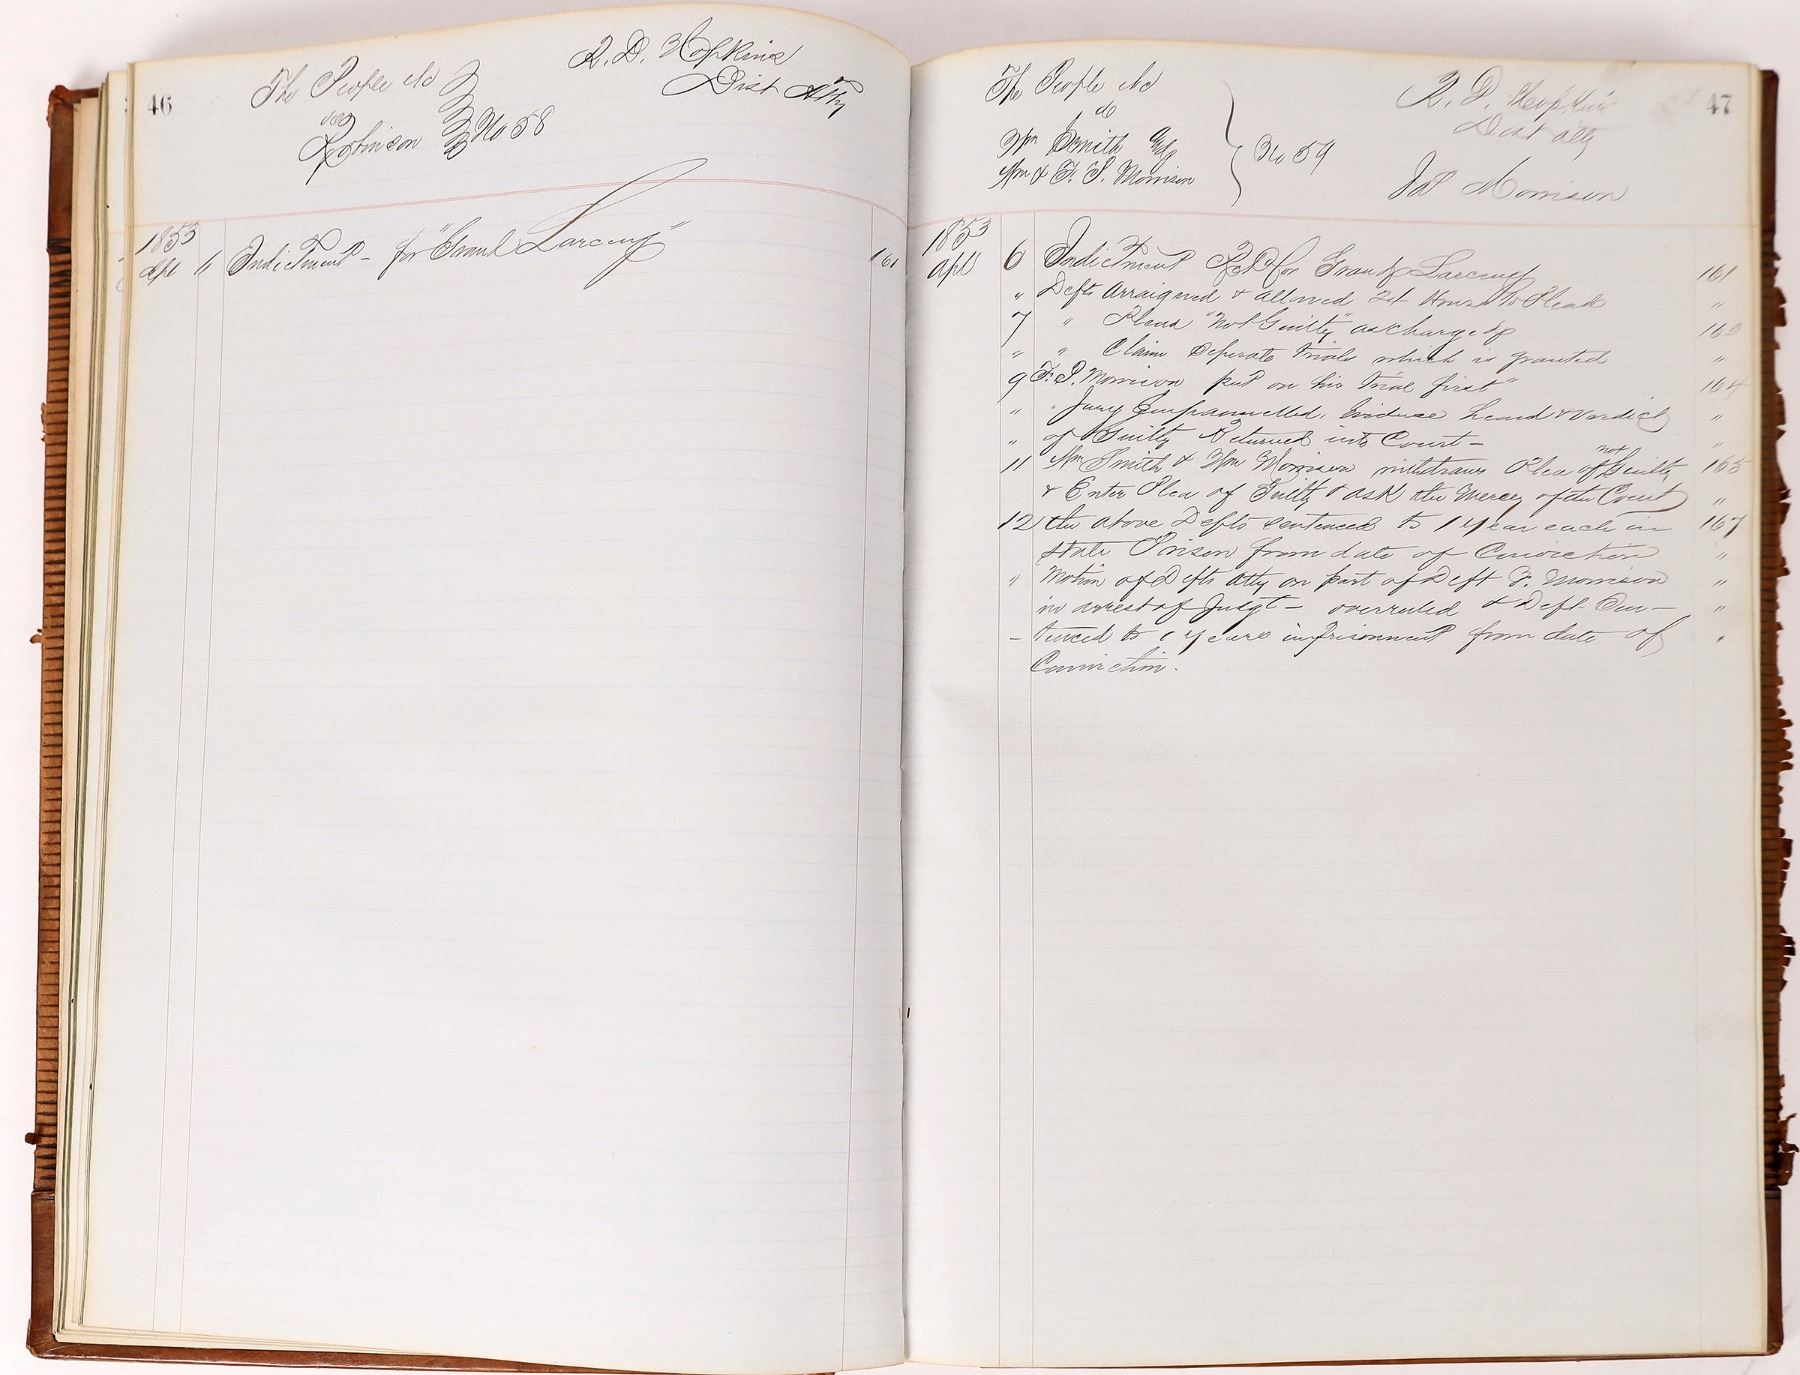 46
The People &c
vs
Robinson
No 58
R. D. Hopkins
Dist Atty
1853
Apl 6 Indictment - for "Grand Larceny" 161
47
The People &c
vs
Wm Smith
Wm & F. P. Morrison
No 59
R. D. Hopkins
Dist Atty
Morrison
1853
Apl 6 Indictment for Grand Larceny 161
" Defts Arraigned & allowed 24 Hours to Plead "
7 " Plead "Not Guilty" as charged 162
" " Claim Seperate trials which is granted "
9 F. P. Morrison put on his trial first" 164
" " Jury Empannelled, Evidence heard & Verdict "
" of Guilty Returned into Court - "
11 Wm Smith & Wm Morrison withdraws Plea of not Guilty 165
& Enter Plea of Guilty & ask the Mercy of the Court "
12 the above Defts sentenced to 1 year each in 167
State Prison from date of Conviction "
" Motion of Defts Atty on part of Deft F. Morrison "
in arrest of Judgt - overruled & Deft Sen- "
- tenced to years imprisonment from date of "
Conviction.